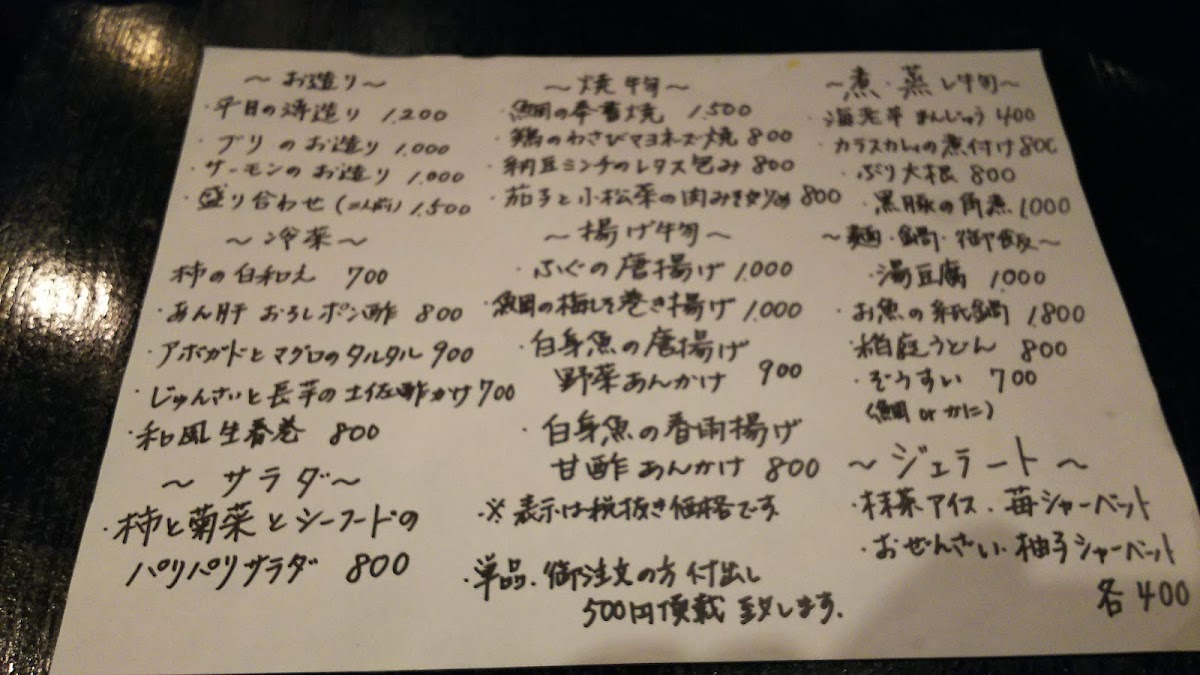 ～お造り～
・平目の薄造り 1,200
・ブリのお造り 1,000
・サーモンのお造り 1,000
・盛り合わせ(二人前) 1,500
～冷菜～
柿の白和え 700
・あん肝 おろしポン酢 800
・アボガドとマグロのタルタル 900
・じゅんさいと長芋の土佐酢かけ 700
・和風生春巻 800
～サラダ～
・柿と菊菜とシーフードの
パリパリサラダ 800
～焼物～
・鯛の奉書焼 1,500
・鶏のわさびマヨネーズ焼 800
・納豆ミンチのレタス包み 800
・茄子と小松菜の肉みそ炒め 800
～揚げ物～
・ふぐの唐揚げ 1,000
・鯛の梅しそ巻き揚げ 1,000
・白身魚の唐揚げ
野菜あんかけ 900
・白身魚の春雨揚げ
甘酢あんかけ 800
※表示は税抜き価格です
・単品、御注文の方付出し
500円頂戴致します。
～煮・蒸し物～
・海老芋まんじゅう 400
・カラスカレイの煮付け 800
・ぶり大根 800
・黒豚の角煮 1000
～麺・鍋・御飯～
・湯豆腐 1,000
・お魚の紙鍋 1,800
・稲庭うどん 800
・ぞうすい 700
(鯛 or かに)
～ジェラート～
・抹茶アイス・苺シャーベット
・おぜんざい・柚子シャーベット
各400